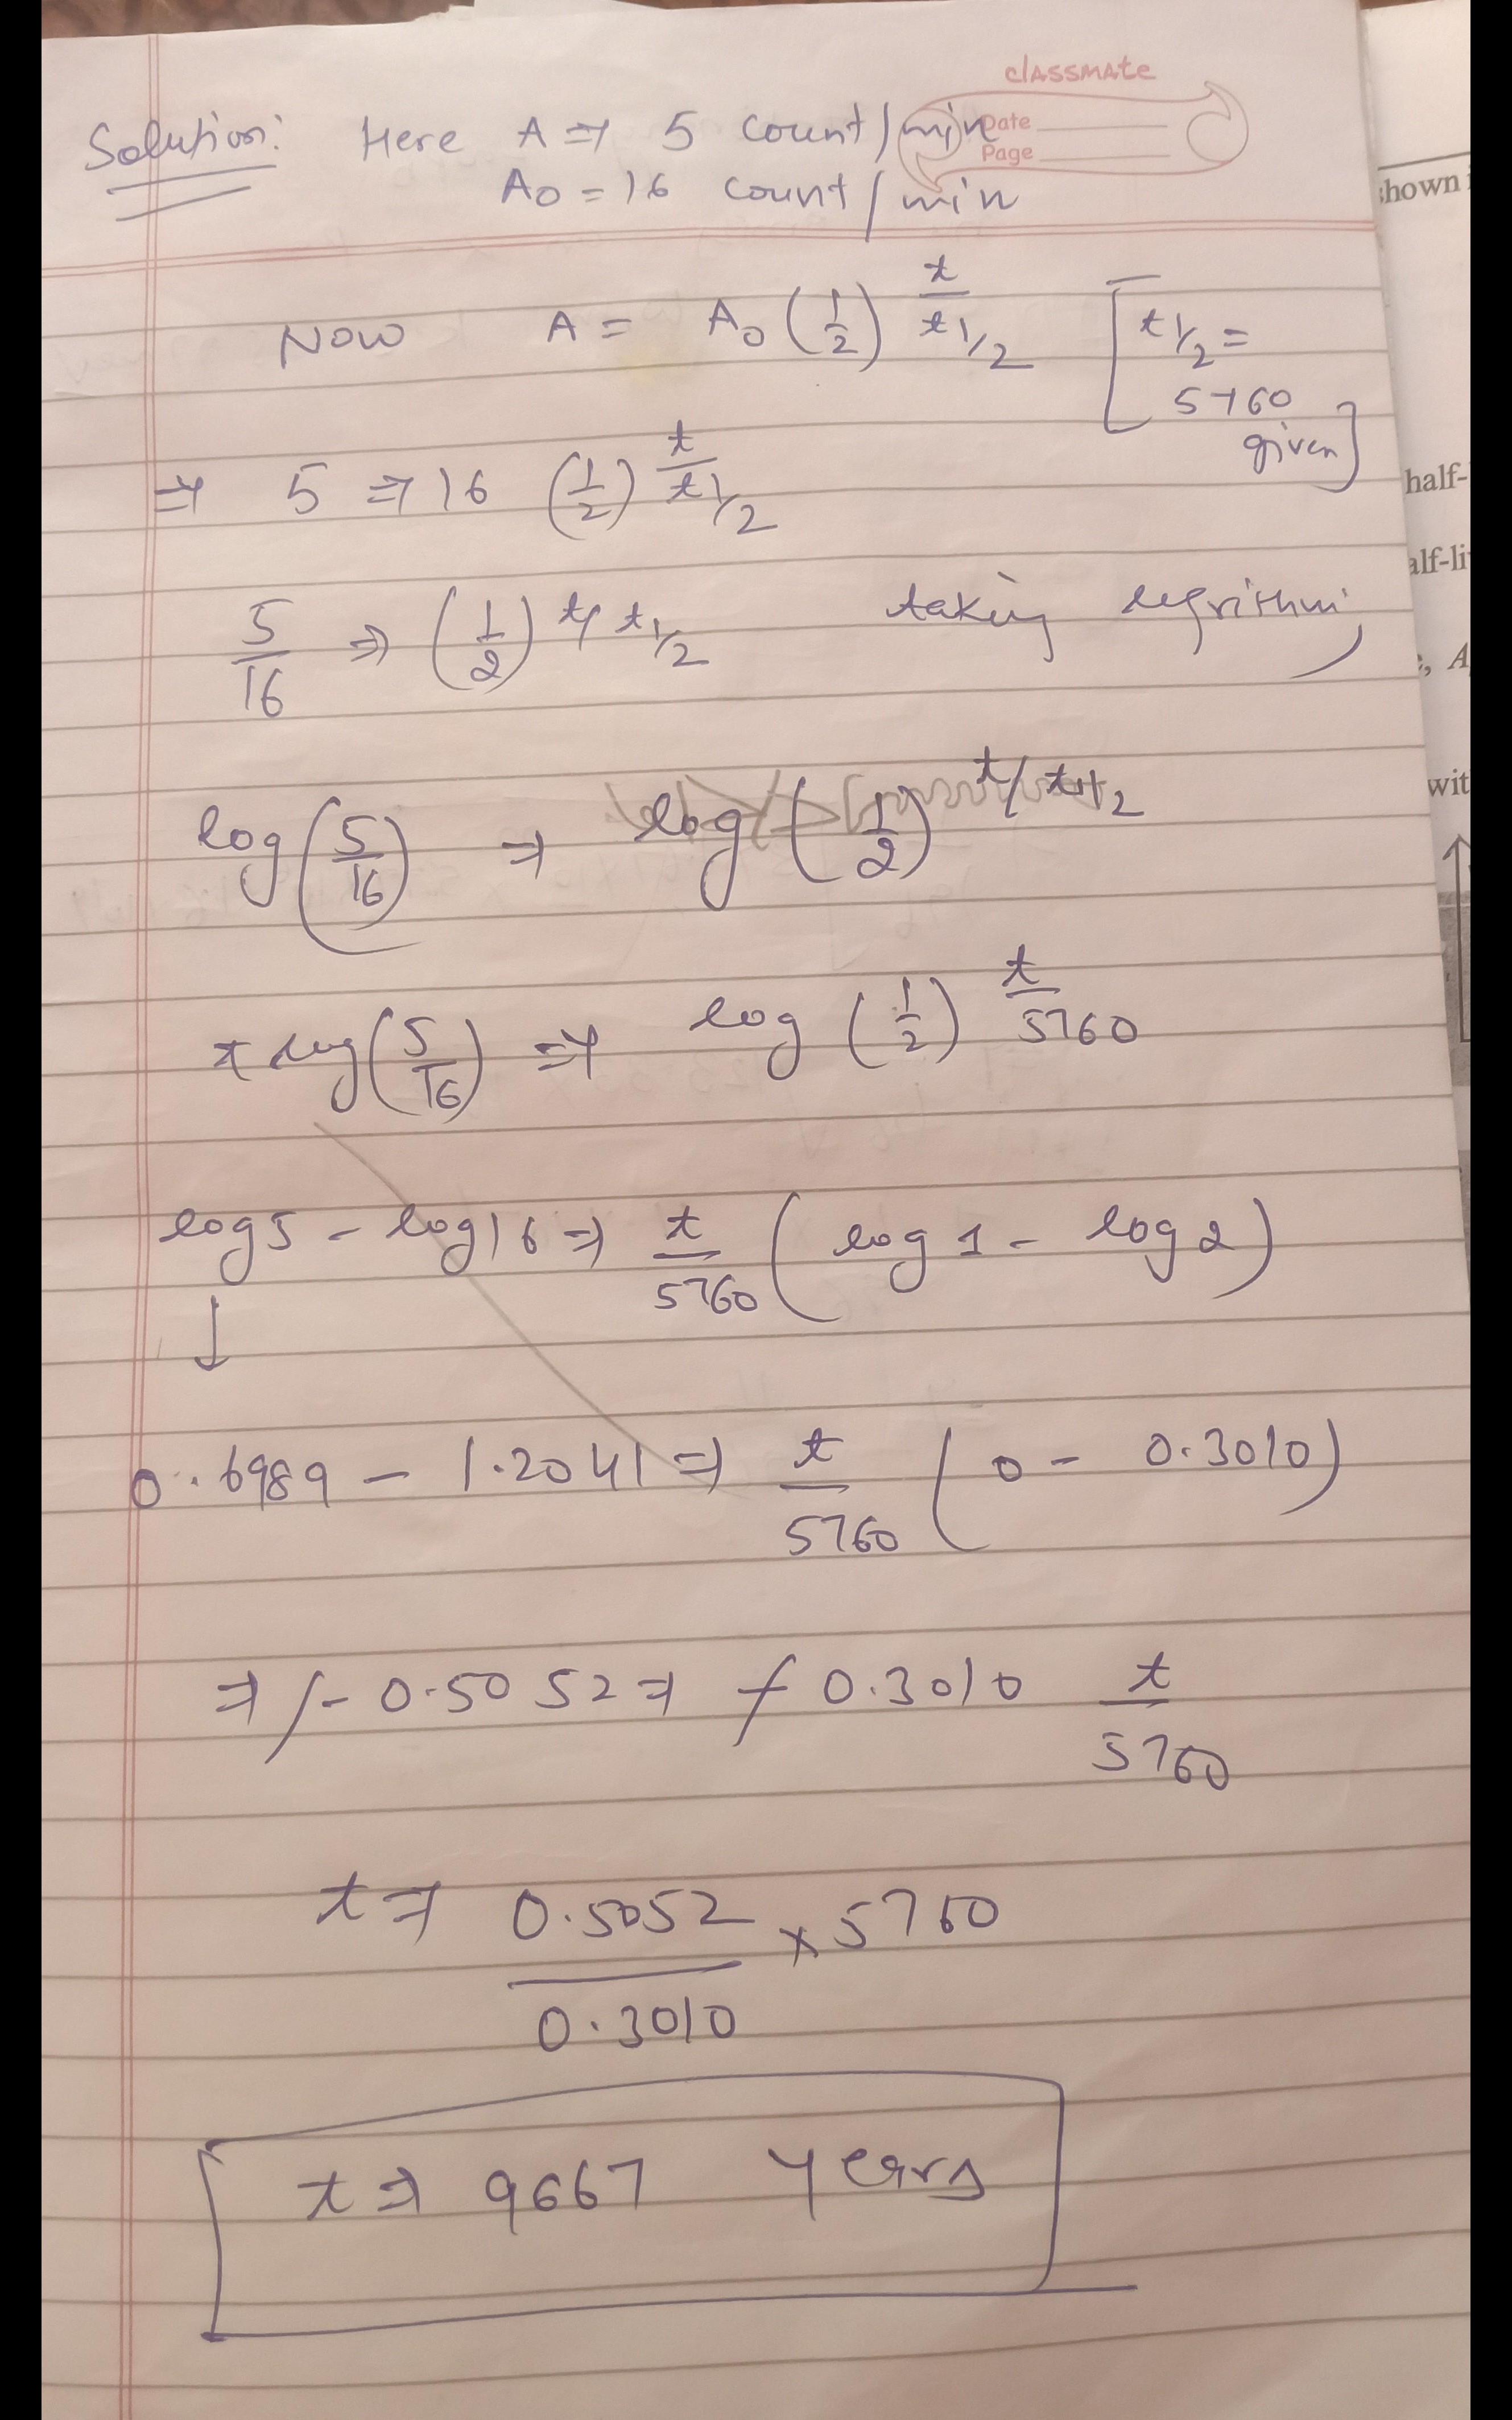 classmate
Date
Page
Solution: Here A ⇒ 5 count/min
A0 = 16 count/min
Now A = A0 (1/2)^(t/t1/2) [t1/2 = 5760 given]
⇒ 5 ⇒ 16 (1/2)^(t/t1/2)
5/16 ⇒ (1/2)^(t/t1/2) taking
log(5/16) ⇒ log(1/2)^(t/t1/2)
log(5/16) ⇒ log(1/2)^(t/5760)
log5 - log16 ⇒ t/5760 (log 1 - log 2)
↓
0.6989 - 1.2041 ⇒ t/5760 (0 - 0.3010)
⇒ - 0.5052 ⇒ - 0.3010 t/5760
t ⇒ 0.5052/0.3010 × 5760
t ⇒ 9667 years
shown
half-
alf-li
, A
wit